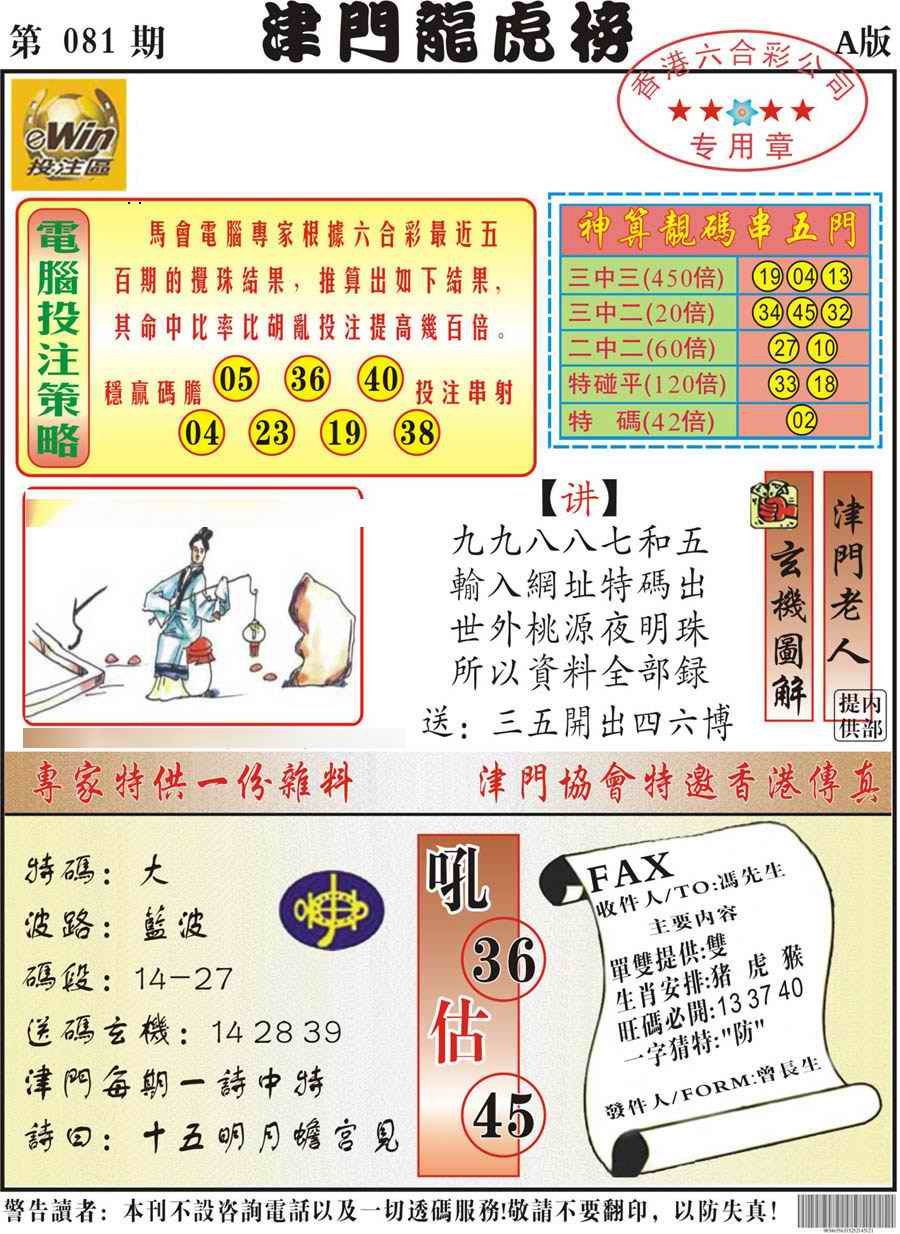 第 081 期
津門龍虎榜
A版
香港六合彩公司
专用章
eWin
投注區
電腦投注策略
馬會電腦專家根據六合彩最近五
百期的攪珠結果，推算出如下結果，
其命中比率比胡亂投注提高幾百倍。
穩贏碼膽 05 36 40 投注串射
04 23 19 38
神算靚碼串五門
三中三(450倍) 19 04 13
三中二(20倍) 34 45 32
二中二(60倍) 27 10
特碰平(120倍) 33 18
特 碼(42倍) 02
【讲】
九九八八七和五
輸入網址特碼出
世外桃源夜明珠
所以資料全部録
送：三五開出四六博
玄機圖解
津門老人
提供
内部
專家特供一份雜料
津門協會特邀香港傳真
特碼：大
波路：藍波
碼段：14-27
送碼玄機：14 28 39
津門每期一詩中特
詩曰：十五明月蟾宮見
吼
36
估
45
FAX
收件人/TO:馮先生
主要内容
單雙提供:雙
生肖安排:猪 虎 猴
旺碼必開:13 37 40
一字猜特:"防"
發件人/FORM:曾長生
警告讀者：本刊不設咨詢電話以及一切透碼服務!敬請不要翻印，以防失真!